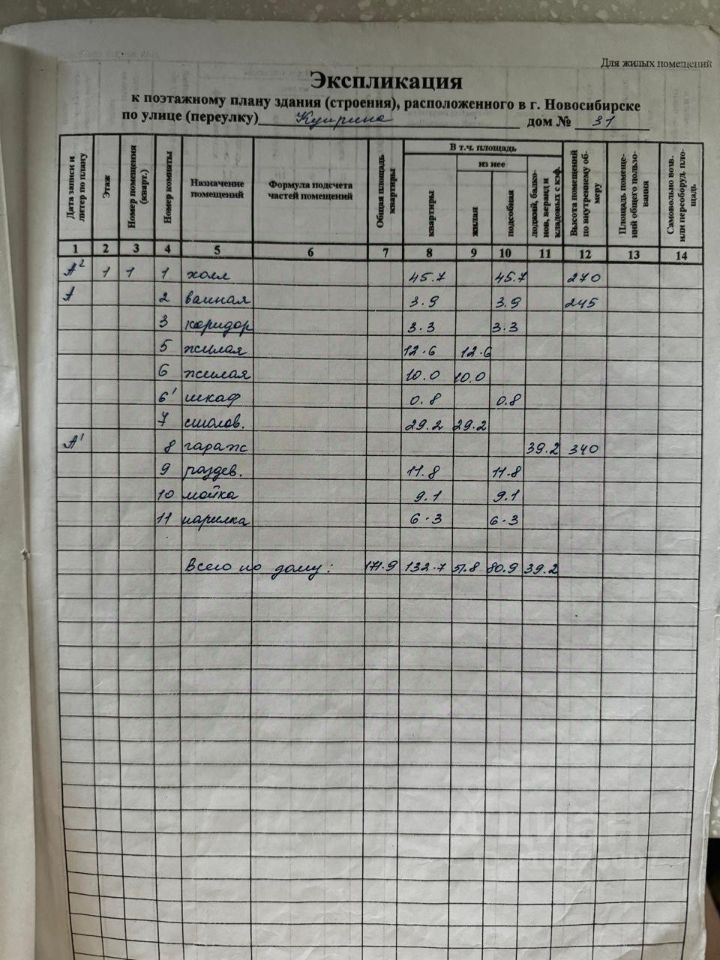 Для жилых помещений
Экспликация
к поэтажному плану здания (строения), расположенного в г. Новосибирске
по улице (переулку) Куприна дом № 31
Дата записи и литер по плану
Этаж
Номер помещения (кварт.)
Номер комнаты
Назначение помещений
Формула подсчета частей помещений
Общая площадь квартиры
В т.ч. площадь
из нее
квартиры
жилая
подсобная
лоджий, балконов, веранд и кладовых с кэф.
Высота помещений по внутреннему обмеру
Площадь помещений общего пользования
Самовольно возв. или переоборуд. площадь
1 2 3 4 5 6 7 8 9 10 11 12 13 14
А² 1 1 1 холл 45.7 45.7 270
А 2 ванная 3.9 3.9 245
3 коридор 3.3 3.3
5 жилая 12.6 12.6
6 жилая 10.0 10.0
6' шкаф 0.8 0.8
7 столов. 29.2 29.2
А¹ 8 гараж 39.2 340
9 раздев. 11.8 11.8
10 мойка 9.1 9.1
11 парилка 6.3 6.3
Всего по дому: 171.9 132.7 51.8 80.9 39.2
Циан